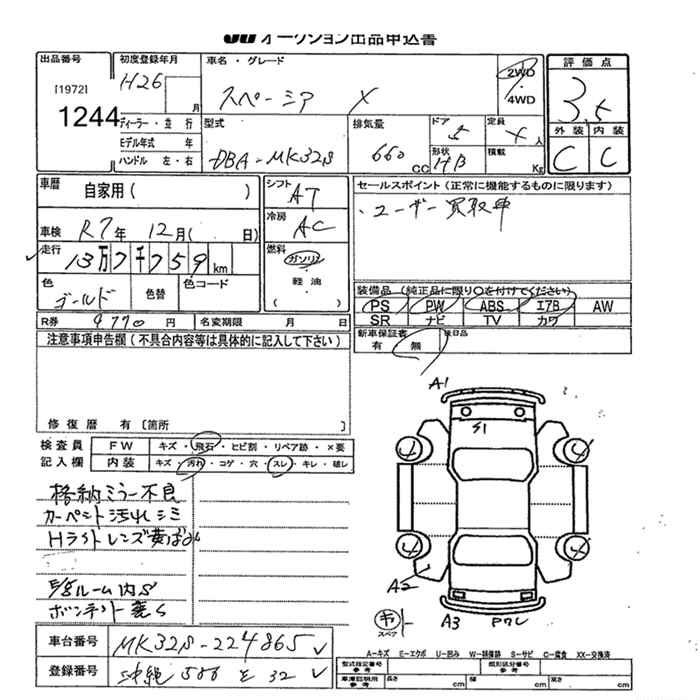 JU オークション出品申込書
出品番号
[1972]
1244
初度登録年月
H26
月
車名・グレード
スペーシア X
2WD
4WD
評価点
3.5
外装 内装
C C
ディーラー・並行
モデル年式 年
ハンドル 左・右
型式
DBA-MK32S
排気量
660
CC
ドア
5
形状
HB
定員
人
積載
Kg
車歴
自家用( )
車検 R7年 12月( 日)
走行
13万7千759km
色
ゴールド
色替
色コード
シフト
AT
冷房
AC
燃料
ガソリン
軽油
( )
セールスポイント(正常に機能するものに限ります)
・ユーザー買取車
装備品(純正品に限り○を付けてください)
PS PW ABS エアB AW
SR ナビ TV カワ
R券 9770円 名変期限 月 日
新車保証書
有 無
注意事項申告欄(不具合内容等は具体的に記入して下さい)
修復歴 有〔箇所 〕
検査員
記入欄
FW キズ・飛石・ヒビ割・リペア跡・×要
内装 キズ・汚れ・コゲ・穴・スレ・キレ・破レ
格納ミラー不良
カーペット汚れシミ
Hライトレンズ黄ばみ
ルーム内S
A1
S1
A2
A3
スペア
A-キズ E-エクボ U-凹み W-補修跡 S-サビ C-腐食 XX-交換済
車台番号 MK32S-224865
登録番号 沖縄 580 を 32
型式指定番号
参考
類別区分番号
参考
車庫証明用
参考
長さ cm 幅 cm 高さ cm